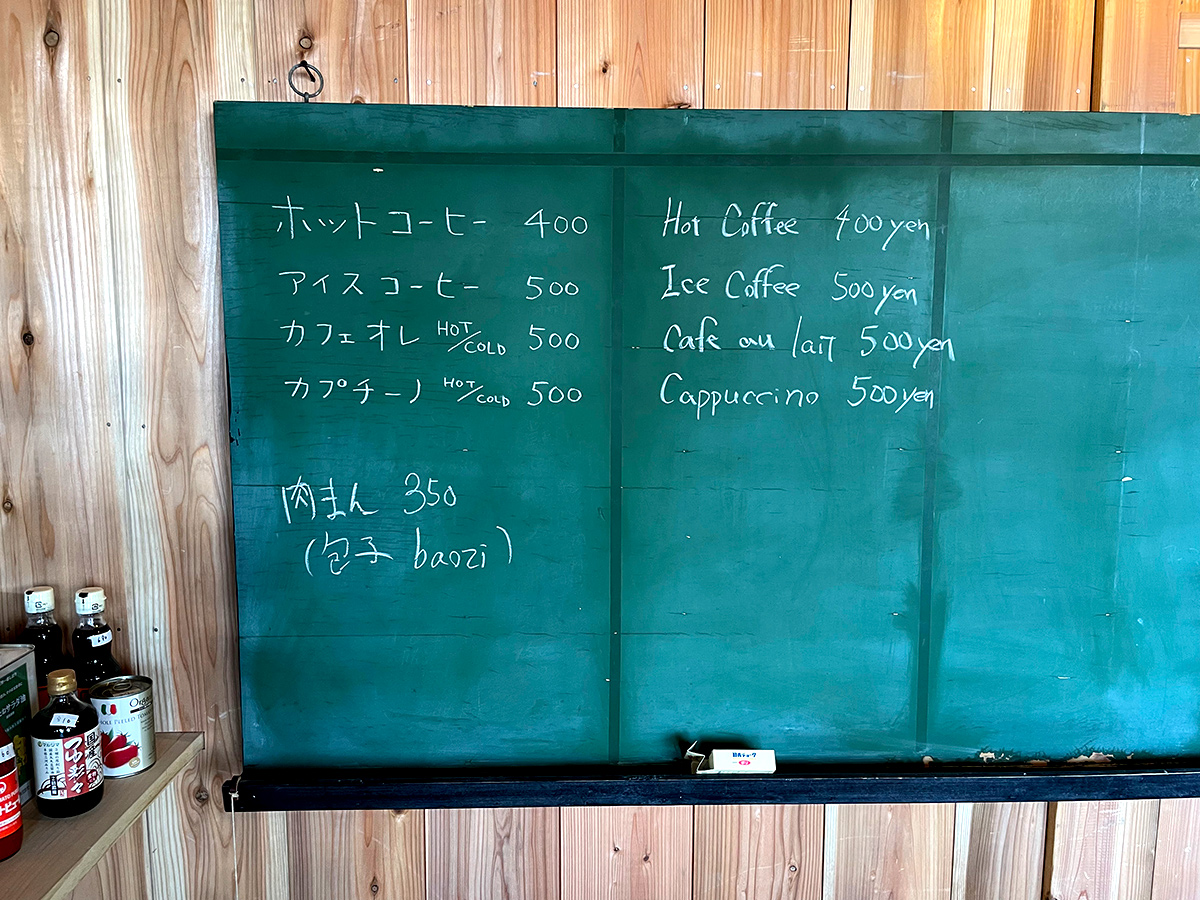 ホットコーヒー 400
アイスコーヒー 500
カフェオレ HOT/COLD 500
カプチーノ HOT/COLD 500
肉まん 350
(包子 baozi)
Hot Coffee 400yen
Ice Coffee 500yen
Cafe au lait 500yen
Cappuccino 500yen
国産
つゆ彩々